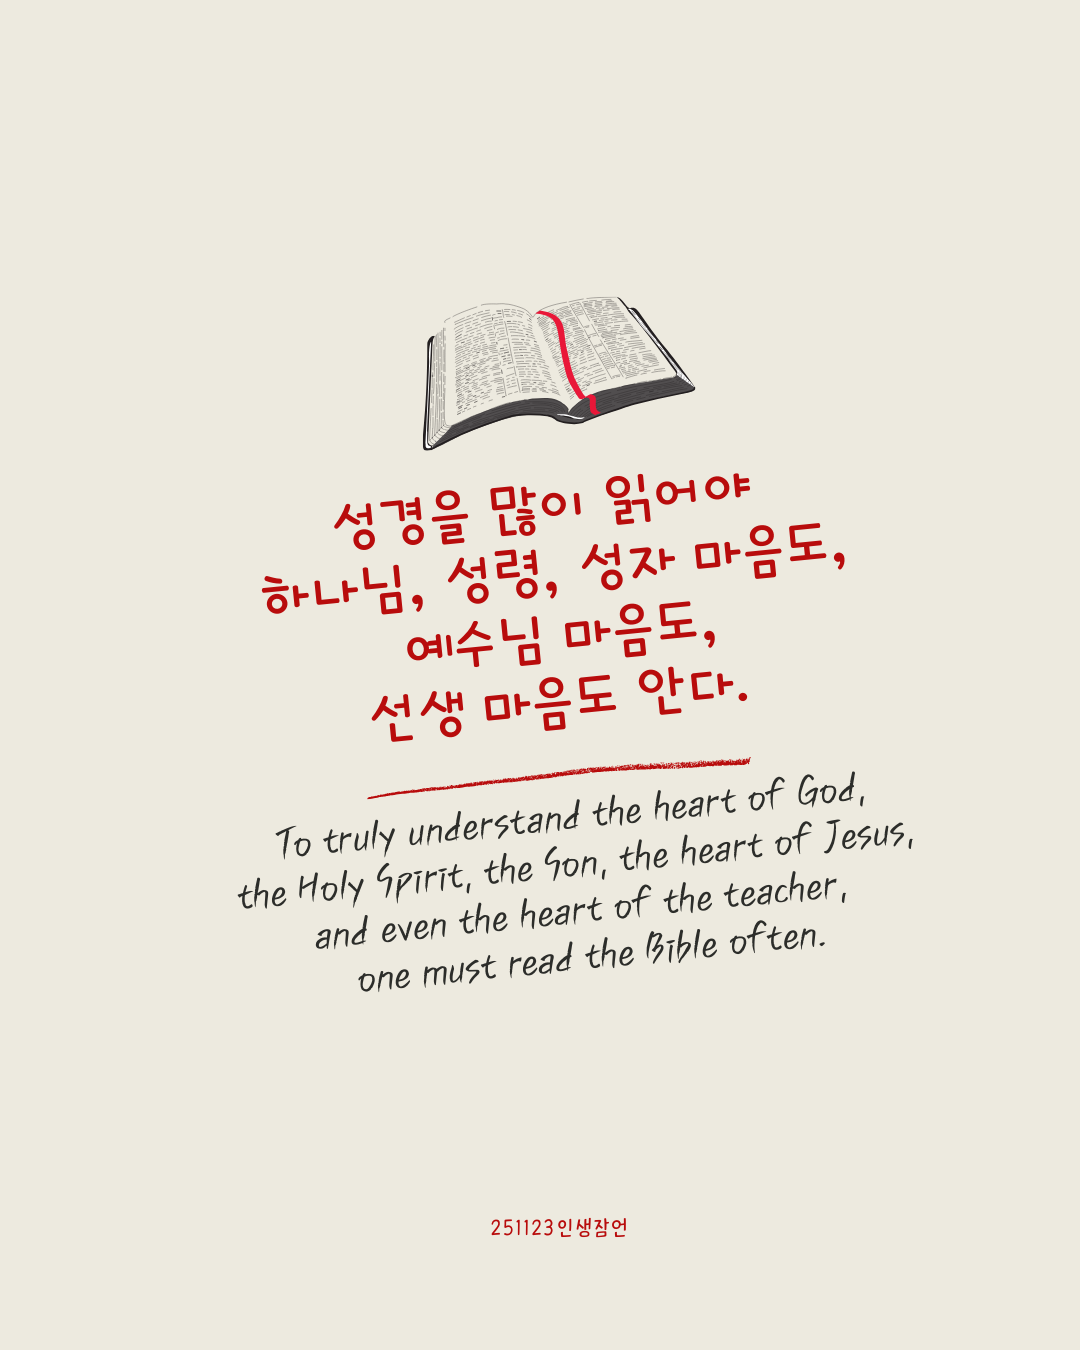 성경을 많이 읽어야
하나님, 성령, 성자 마음도,
예수님 마음도,
선생 마음도 안다.
To truly understand the heart of God,
the Holy Spirit, the Son, the heart of Jesus,
and even the heart of the teacher,
one must read the Bible often.
251123인생잠언